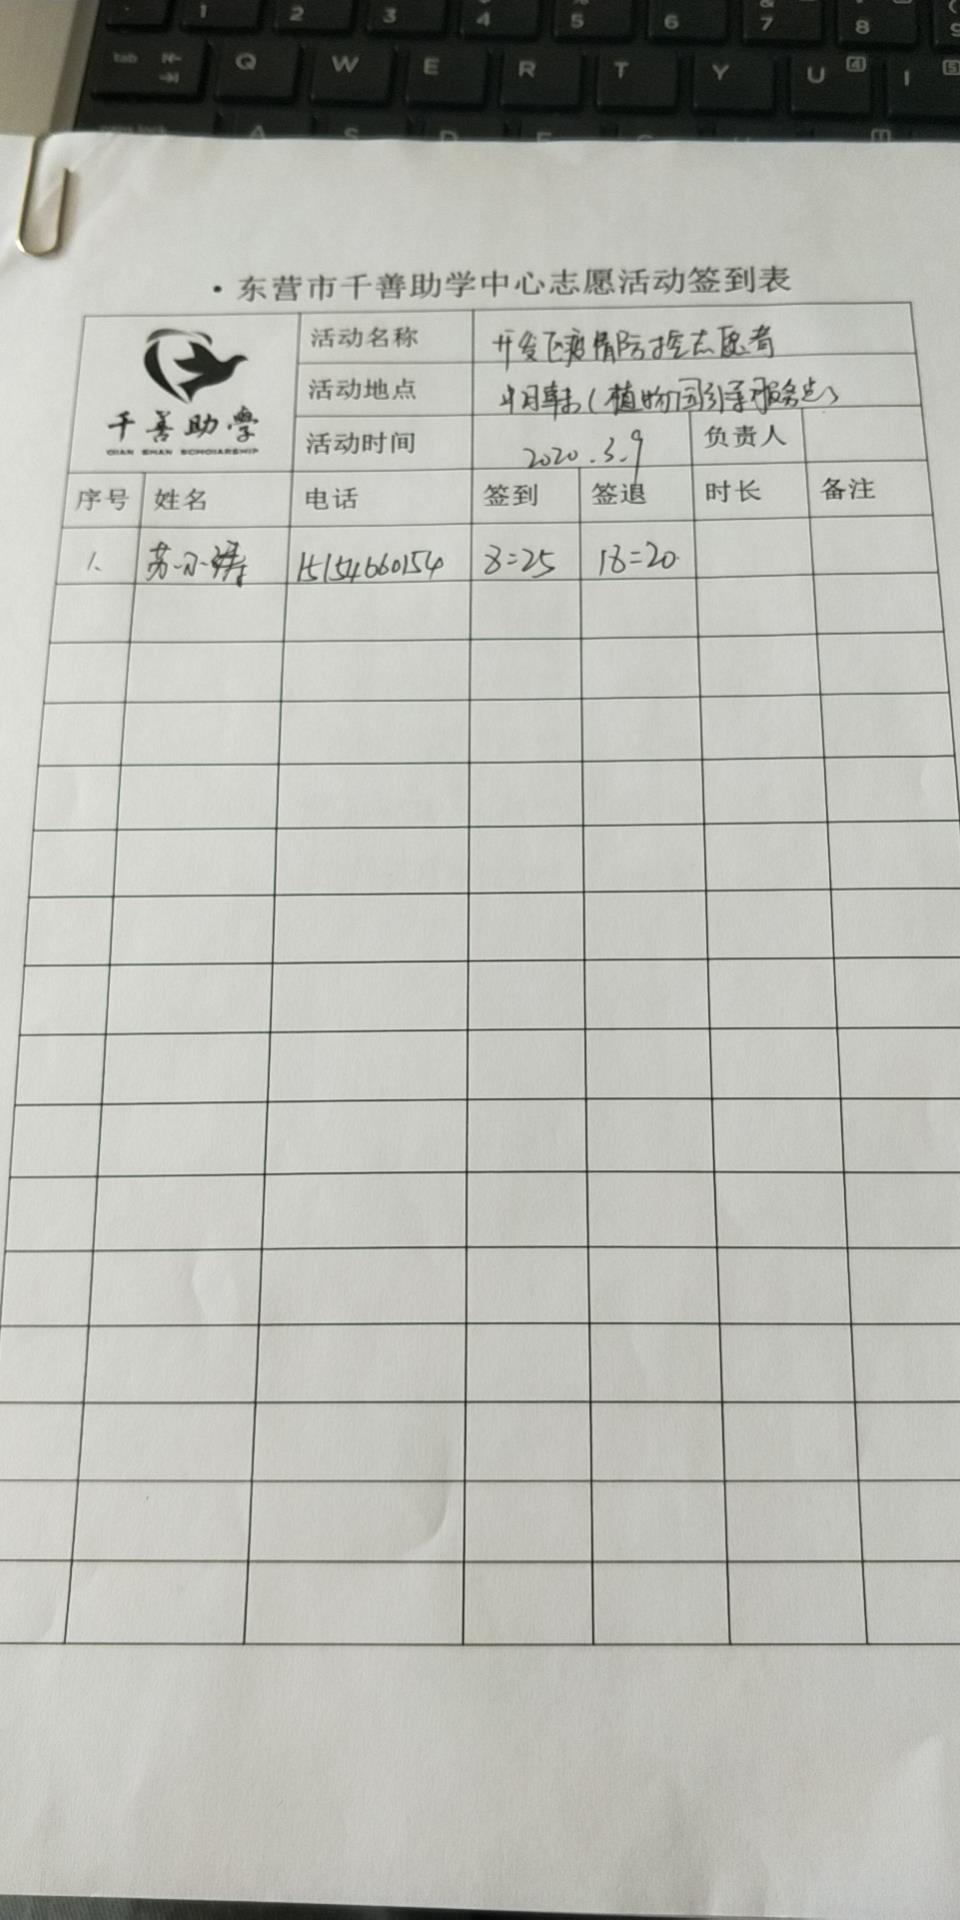 1 2 3 4 5 6 & 7 8 9
tab Q W E R T Y U 4 I 5
A S D
·东营市千善助学中心志愿活动签到表
千善助學
QIAN SHAN SCHOLARSHIP
活动名称 开发区疫情防控志愿者
活动地点 (植物园引亲服务点)
活动时间 2020.3.9 负责人
序号 姓名 电话 签到 签退 时长 备注
1、 苏小 15154660154 8:25 18:20